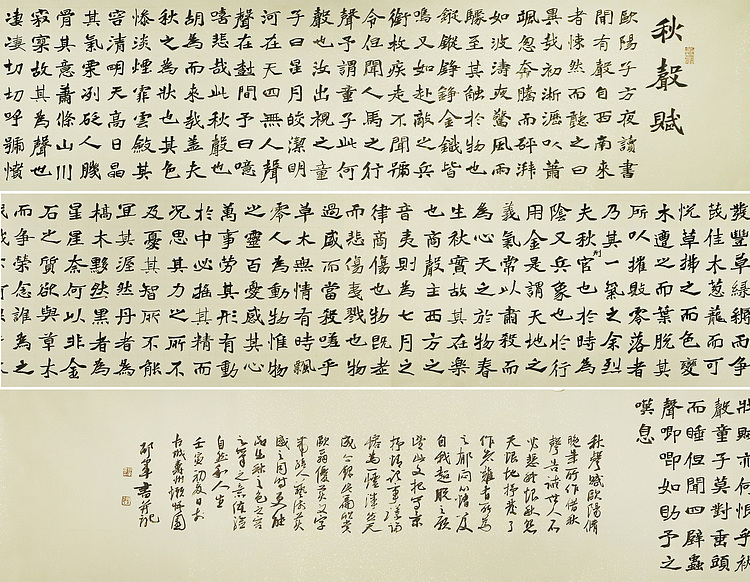 秋聲賦
歐陽子方夜讀書
聞有聲自西南來
者悚然而聽之曰
異哉初淅瀝以蕭
颯忽奔騰而砰湃
如波濤夜驚風雨
驟至其觸於物也
鏦鏦錚錚金鐵皆
鳴又如赴敵之兵
銜枚疾走不聞號
令但聞人馬之行
聲予謂童子此何
聲也汝出視之童
子曰星月皎潔明
河在天四無人聲
聲在樹間予曰噫
嘻悲哉此秋聲也
胡為而來哉蓋夫
秋之為狀也其色
慘淡煙霏雲斂其
容清明天高日晶
其氣栗冽砭人肌
骨其意蕭條山川
寂寥故其為聲也
淒淒切切呼號憤
發豐草綠縟而爭
茂佳木蔥蘢而可
悅草拂之而色變
木遭之而葉脫其
所以摧敗零落者
乃其一氣之余烈
夫秋刑官也於時為
陰又兵象也於行
用金是謂天地之
義氣常以肅殺而
為心天之於物春
生秋實故其在樂
也商聲主西方之
音夷則為七月之
律商傷也物既老
而悲傷夷戮也物
過盛而當殺嗟乎
草木無情有時飄
零人為動物惟物
之靈百憂感其心
萬事勞其形有動
於中必搖其精而
況思其力之所不
及憂其智所不能
宜其渥然丹者為
槁木黟然黑者為
星星奈何以非金
石之質欲與草木
而爭榮念誰為之
戕賊亦何恨乎秋
聲童子莫對垂頭
而睡但聞四壁蟲
聲唧唧如助予之
嘆息
秋聲賦歐陽脩
晚年所作借秋
聲告誡世人不
必悲秋恨秋怨
天恨地
自然和人生
壬寅初夏日於
書並記